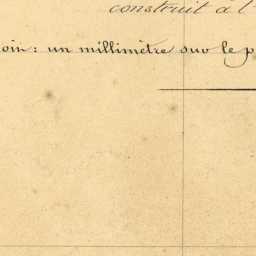 construit à l'
oin: un millimètre sur le p